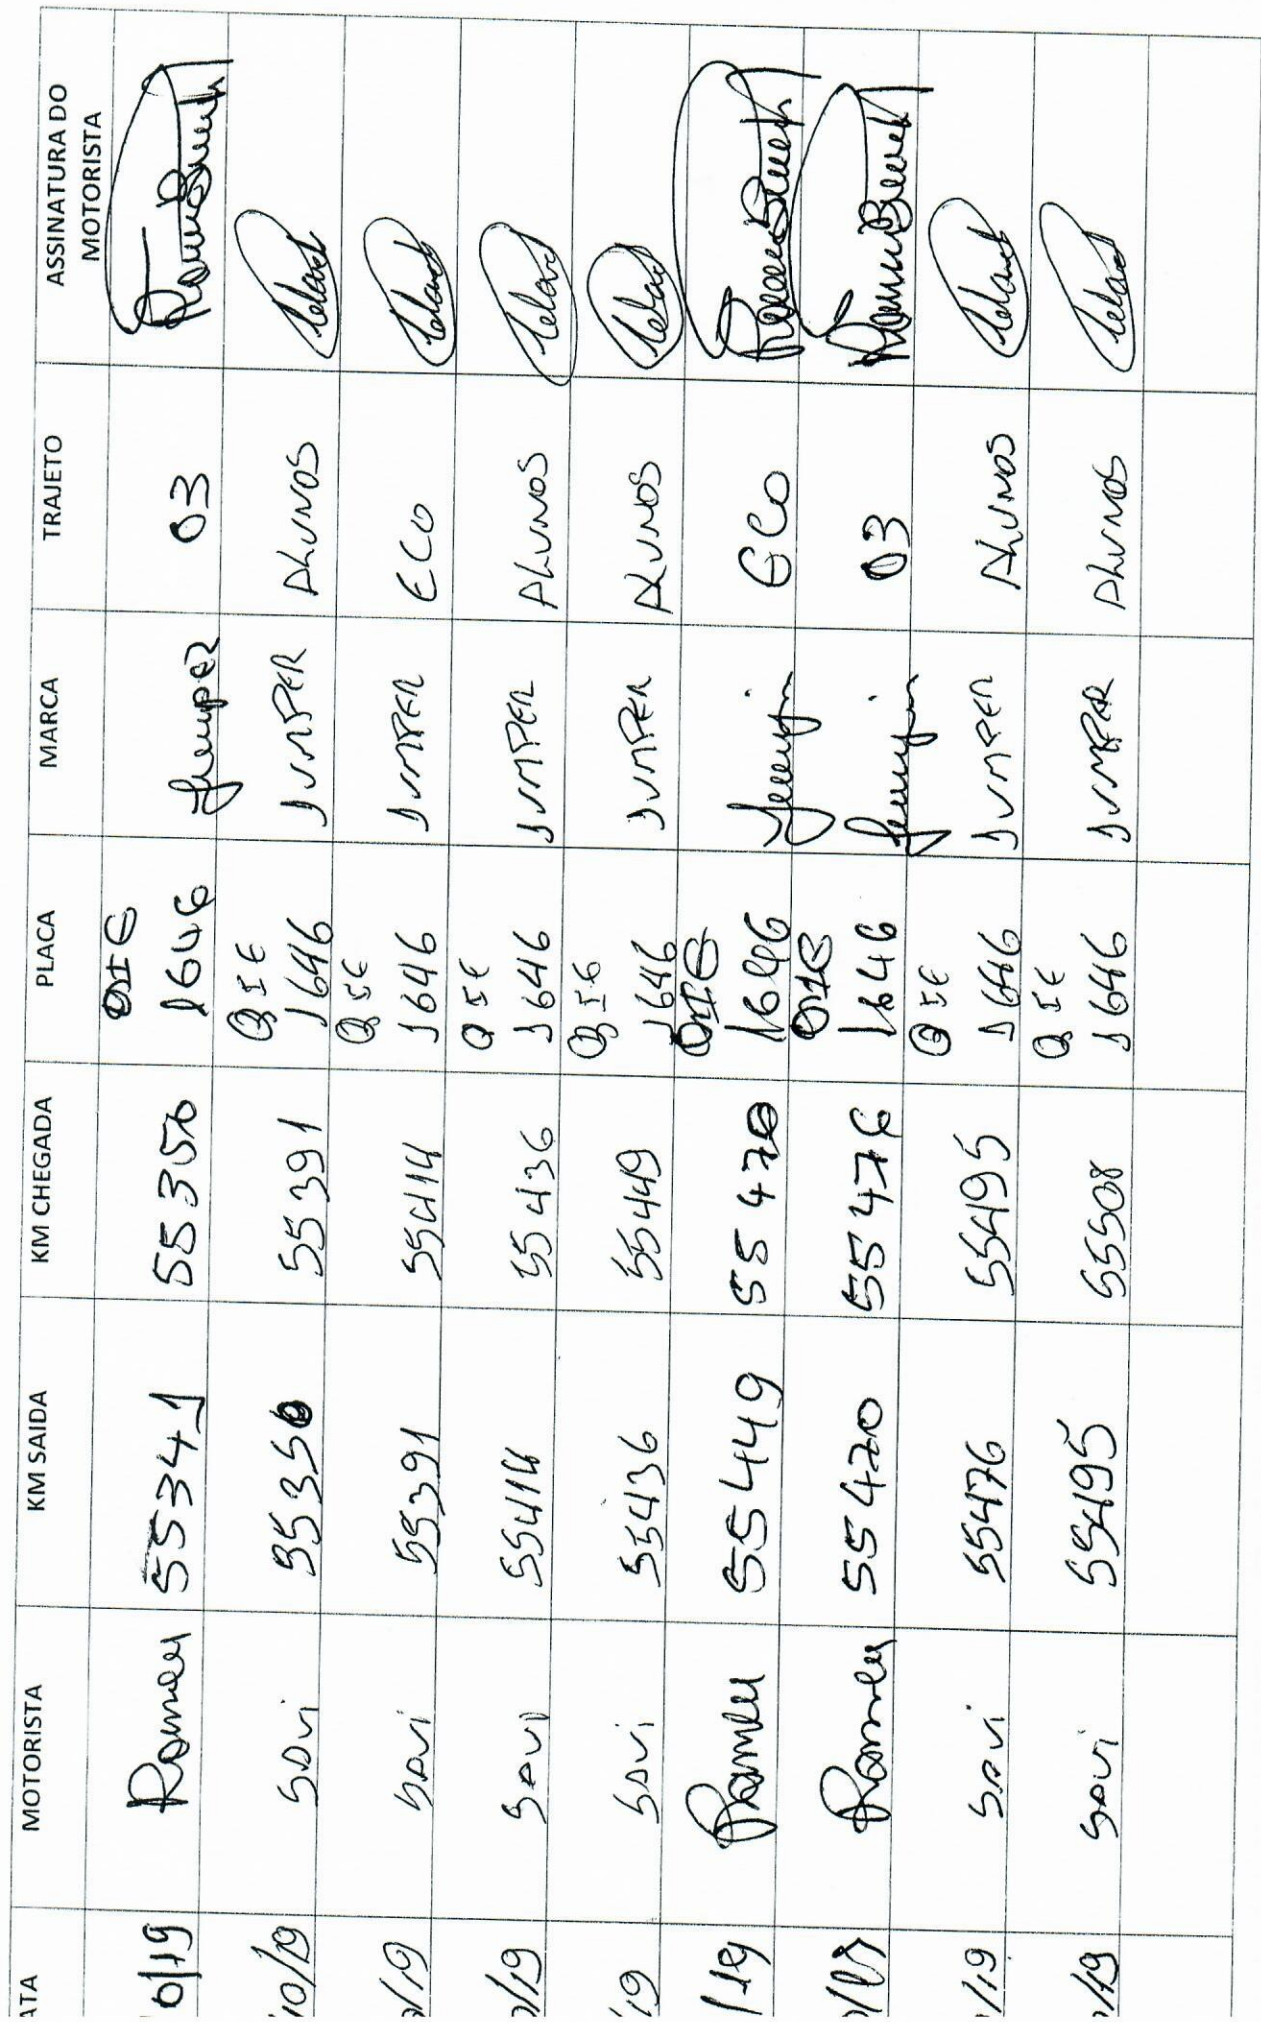 ATA MOTORISTA KM SAIDA KM CHEGADA PLACA MARCA TRAJETO ASSINATURA DO
MOTORISTA
0/19 Romeu 55341 55350 QIE
1646 Jumper 03
10/19 Savi 55350 55391 QIE
1646 JUMPER ALUNOS
0/19 Savi 55391 55414 QIE
1646 JUMPER ECO
0/19 Savi 55414 55436 QIE
1646 JUMPER ALUNOS
/19 Savi 55436 55449 QIE
1646 JUMPER ALUNOS
/19 Romeu 55449 55470 QIE
1646 ECO
Romeu 55470 55476 QIE
1646 03
0/19 Savi 55476 55495 QIE
1646 JUMPER ALUNOS
0/19 Savi 55495 55508 QIE
1646 JUMPER ALUNOS